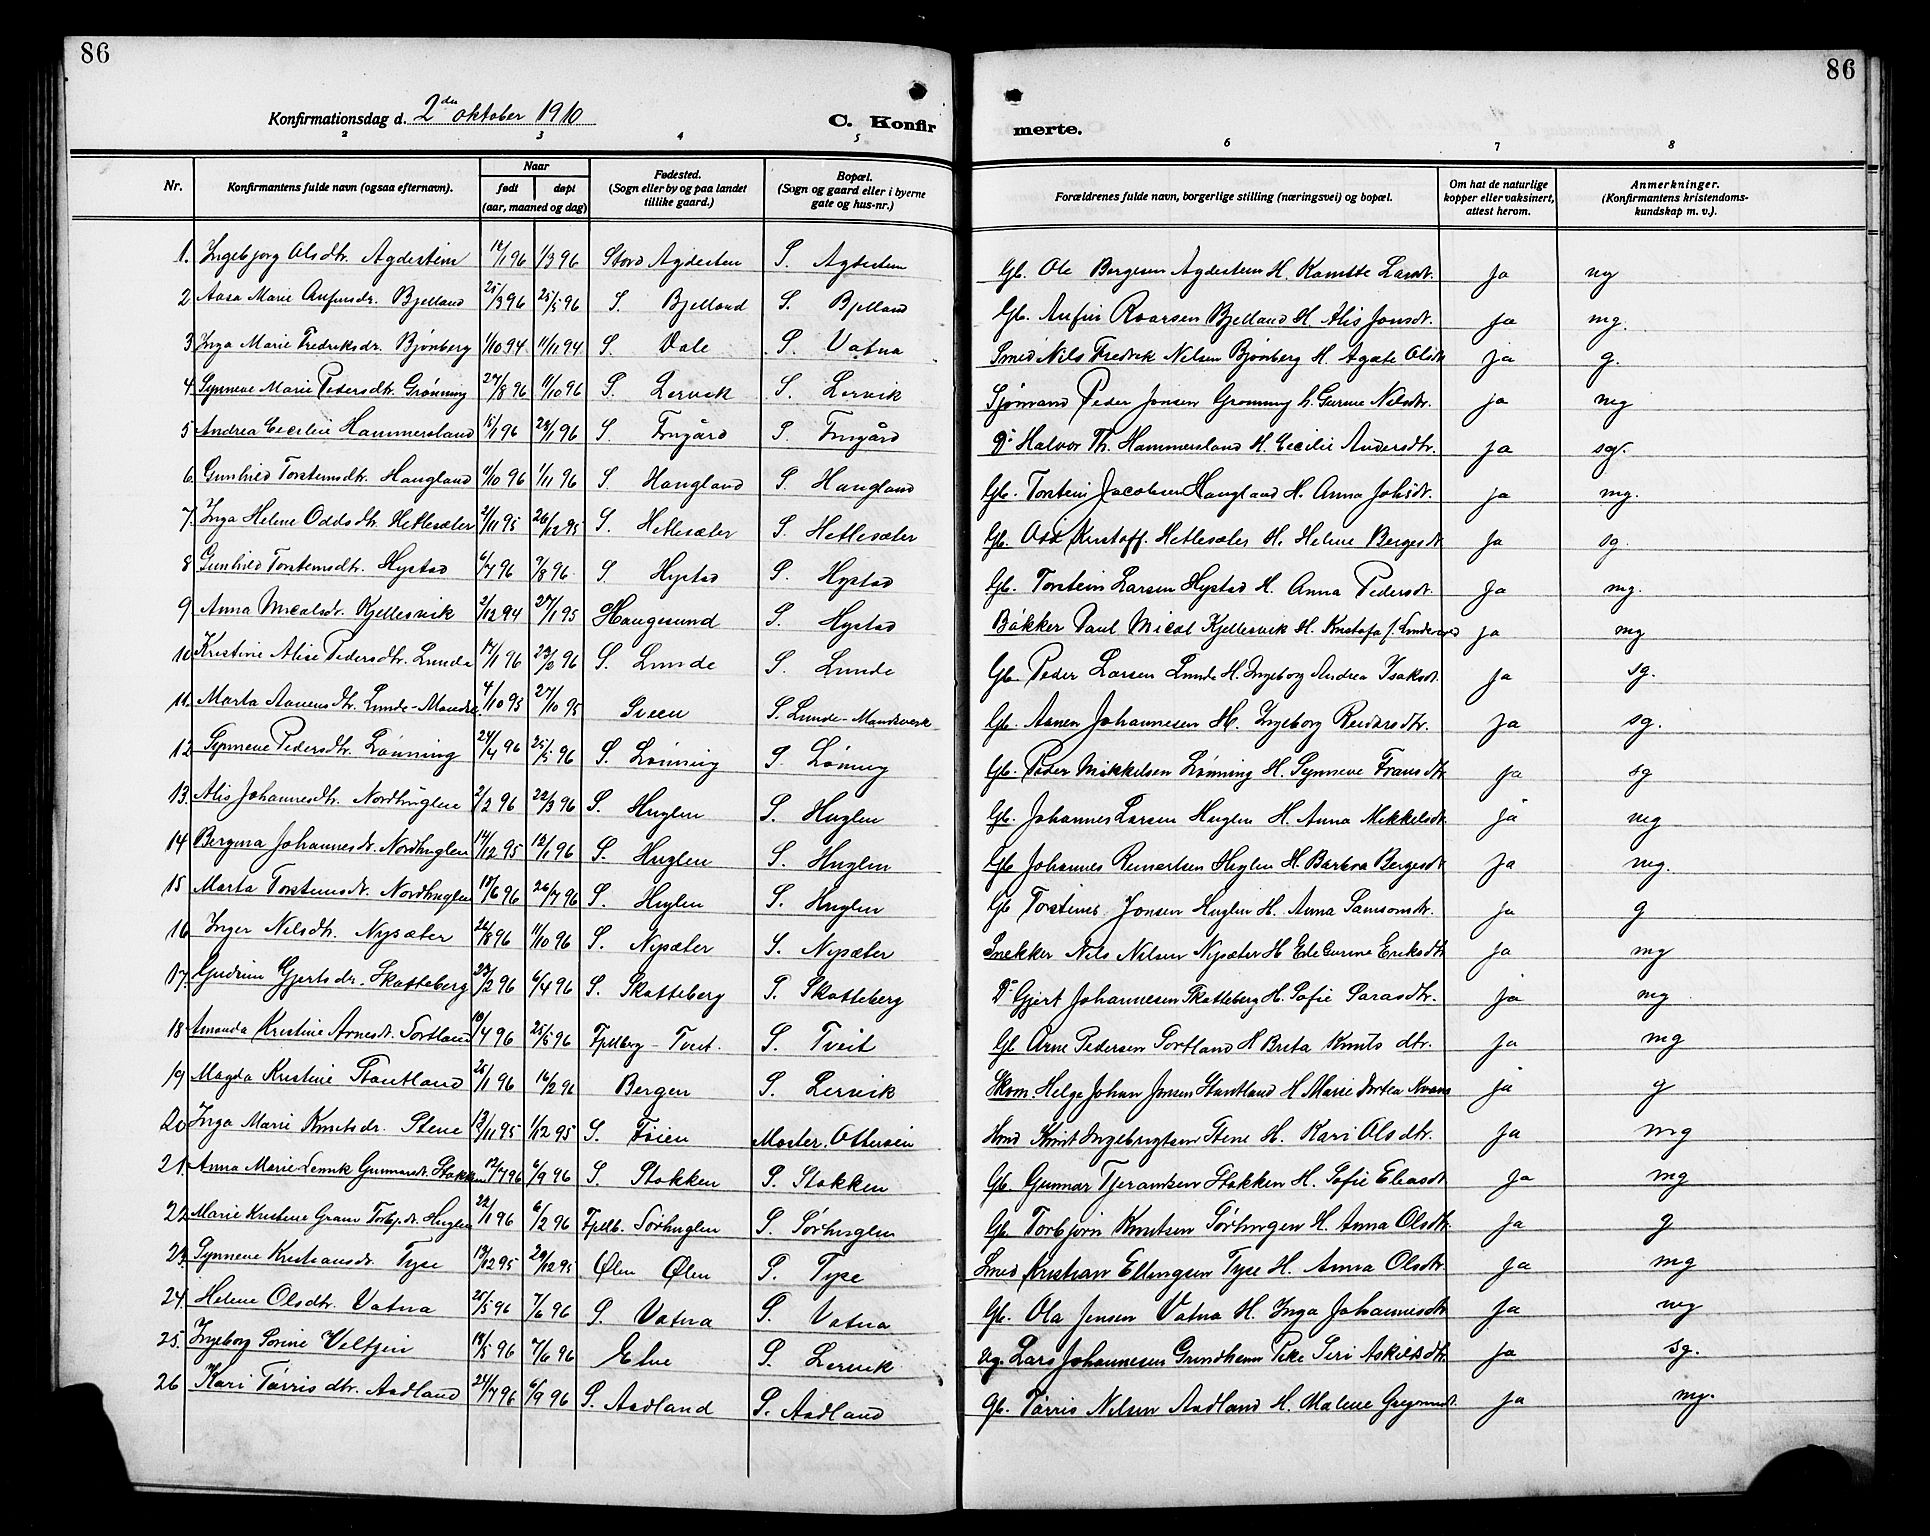 86
86
Konfirmationsdag d. 2den oktober 1910
C. Konfir
merte.
2 3 4 5 6 7 8
Nr.
Konfirmantens fulde navn (ogsaa efternavn).
Naar
født døpt
(aar, maaned og dag)
Fødested.
(Sogn eller by og paa landet
tillike gaard.)
Bopæl.
(Sogn og gaard eller i byerne
gate og hus-nr.)
Forældrenes fulde navn, borgerlige stilling (næringsvei) og bopæl.
Om hat de naturlige
kopper eller vaksinert,
attest herom.
Anmerkninger.
(Konfirmantens kristendoms-
kundskap m. v.).
1. Ingebjørg Olsdtr. Agdestein 1/3 96 Stord Agdesten S. Agdesten Gb. Ole Bergesen Agdestein H. Larsdt. ja mg
2 Aasa Marie Anfinsdr. Bjelland 25/3 96 25/5 96 S. Bjelland S. Bjelland Gb. Anfin Roarsen Bjelland H. Alis Jonsdt. ja mg.
3 Inga Marie Fredriksdr. Bjönberg 1/10 94 11/11 94 S. Vale S. Vatna Smed Nils Fredrik Nilsen Bjönberg H. Agate Olsdt ja g.
4 Synneve Marie Pedersdtr. Grønning 27/8 96 11/10 96 S. Lervik S. Lervik Sjömand Peder Jensen Grønning h. Gurine Nilsdtr. ja mg
5 Andrea Cecilie Hammersland 15/1 96 S. S. Do Halvor Th. Hammersland H. Cecilie Andersdtr. ja sg.
6 Gunhild Torsteinsdtr. Haugland 11/10 96 1/11 96 S. Haugland S. Haugland Gb. Torstein Jacobsen Haugland H. Anna Johsdt. ja mg.
7. Inga Helene Oddsdtr. Hetlesæter 21/11 95 26/12 95 S. Hetlesæter S. Hetlesæter Gb. Odd Kristoff. Hetlesæter H. Helene Bergesdt ja sg.
8 Gunhild Torsteinsdtr. Hystad 6/7 96 9/8 96 S Hystad S. Hystad Gb. Torstein Larsen Hystad H. Anna Pedersdt. ja mg.
9 Anna Micalsdr. Kjellesvik 2/12 94 27/1 95 Haugesund S. Hystad Bäkker Paul Mical Kjellesvik H. Kristofa f. ja mg
10 Kristine Alise Pedersdtr. Lunde 17/1 96 23/2 96 S. Lunde S. Lunde Gb. Peder Larsen Lunde H. Ingeborg Andrea Isaksdt. ja sg.
11. Marta Aanensdtr. Lunde-Mandse. 4/10 95 27/10 95 Sveen S. Lunde-Mandseverk Gb. Aanen Johannesen H. Ingeborg Reidarsdtr. ja sg.
12 Synneve Pedersdtr. Lønning 24/4 96 25/5 96 S. Lønning S. Lønning Gb. Peder Mikkelsen Lønning H. Synneve Fransdtr. ja sg
13. Alis Johannesdtr. Nordhuglen 2/2 96 22/3 96 S. Huglen S. Huglen Gb. Johannes Larsen Huglen H. Anna Mikkelsdt. ja mg
14 Bergina Johannesdt. Nordhuglen 14/12 95 12/1 96 S. Huglen S. Huglen Gb. Johannes Reinertsen Huglen H. Barbra Bergesdt ja mg.
15 Marta Torsteinsdt. Nordhuglen 18/6 96 26/7 96 S. Huglen S. Huglen Gb Torstein Jonsen Huglen H. Anna Samsonsdtr. ja g
16 Inger Nilsdtr. Nysæter 26/8 96 11/10 96 S. Nysæter S. Nysæter Snekker Nils Nilsen Nysæter H Ede Gurine Eriksdtr ja mg
17. Gudrun Gjertsdr. Skatteberg 23/2 96 6/4 96 S. Skatteberg S. Skatteberg Do Gjert Johannesen Skatteberg H. Sofie Larasdtr. ja mg
18 Amanda Kristine Arnesdt. Sortland 10/4 96 25/5 96 Fjelberg - Tveit. S. Tveit Gb Arne Pedersen Sortland H Brita Knuts dtr. ja mg
19 Magda Kristine Stautland 25/1 96 16/2 96 Bergen S. Lervik Skom. Helge Johan Jensen Stautland H Marie Dortea ja g
20 Inga Marie Knutsdr. Stene 13/11 95 1/12 95 S. Föien Moster. Ottersen Hmd Knut Ingebrigtsen Stene H. Kari Olsdtr. ja mg
21. Anna Marie Gunnarsdt. Stokken 12/7 96 6/9 96 S. Stokken S. Stokken Gb. Gunnar Tjeransen Stokken H. Sofie Eliasdt ja mg
22 Marie Kristine Torbj.dt. Huglen 22/1 96 6/2 96 Fjelb. Sörhuglen S. Sörhuglen Gb. Torbjörn Knutsen Sörhuglen H. Anna Olsdtr. ja g
23. Synneve Kristiansdr. Tyse 13/12 95 29/12 95 Ølen Ølen S. Tyse Smed Kristian Ellingsen Tyse H. Anna Olsdtr. ja mg
24. Helene Olsdtr. Vatna 25/5 96 7/6 96 S. Vatna S. Vatna Gb. Ola Jensen Vatna H. Inga Johannesdtr ja mg
25. Ingeborg Sorine Veltzin 14/5 96 7/6 96 Etne S. Lervik Ug. Lars Johannesen Grindheim Pike Siri Askildsdtr. ja sg.
26 Kari Tørrisdtr. Aadland 24/7 96 6/9 96 S. Aadland S. Aadland Gb. Tørris Nilsen Aadland H. Malene ja mg.